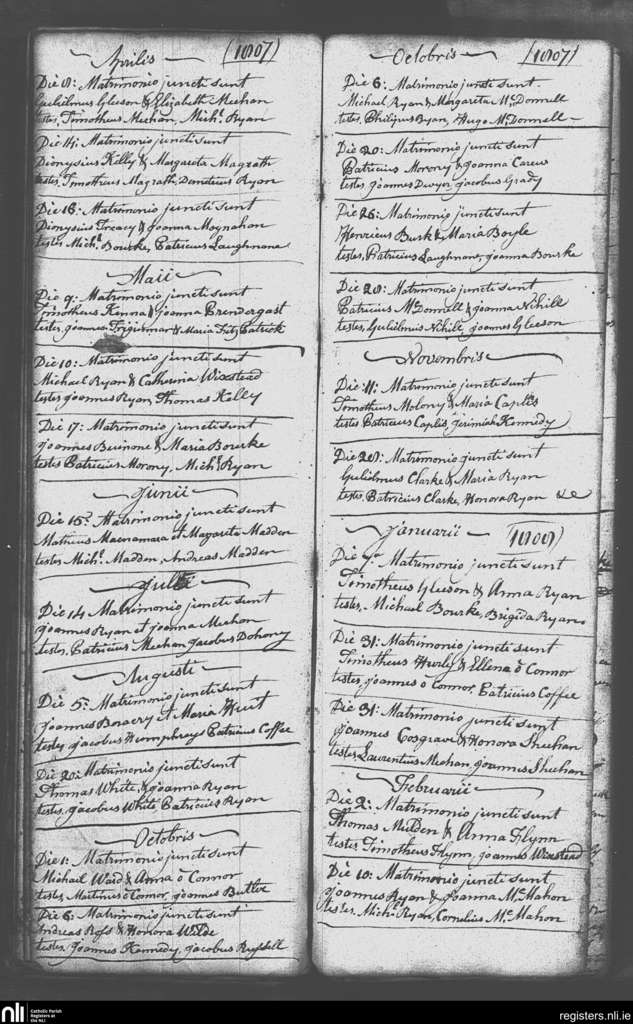 Aprilis (1807)
Die 8: Matrimonio juncti sunt
Gulielmus Gleeson & Elizabeth Meehan
testes, Timotheus Meehan, Michl. Ryan
Die 14: Matrimonio juncti sunt
Dionysius Kelly & Margareta Magrath
testes, Timotheus Magrath, Demetrius Ryan
Die 16: Matrimonio juncti sunt
Dionysius Treacy & Joanna Moynahan
testes Michl. Bourke, Patricius Laughnane
Maii
Die 9: Matrimonio juncti sunt
Timotheus Kinna & Joanna Prendergast
testes, Joannes & Maria Fitz Patrick
Die 10: Matrimonio juncti sunt
Michael Ryan & Catherina Wixstead
testes Joannes Ryan, Thomas Kelly
Die 17: Matrimonio juncti sunt
Joannes & Maria Bourke
testes Patricius Morony, Michl. Ryan
Junii
Die 15: Matrimonio juncti sunt
Matheus Macnamara et Margareta Madden
testes, Michl. Madden, Andreas Madden
Julii
Die 14 Matrimonio juncti sunt
Joannes Ryan et Joanna Meehan
testes, Patricius Meehan Jacobus Dohony
Augusti
Die 5: Matrimonio juncti sunt
Joannes et Maria Hurt
testes, Jacobus Humphreys Patricius Coffee
Die 20: Matrimonio juncti sunt
Thomas White, & Joanna Ryan
testes, Jacobus White Patricius Ryan
Octobris
Die 1: Matrimonio juncti sunt
Michael Ward & Anna ō Connor
testes, Martinus ō Connor, Joannes Butler
Die 6: Matrimonio juncti sunt
Andreas Ross & Honora Wilde
testes, Joannes Kennedy, Jacobus Russell
Octobris (1807)
Die 6: Matrimonio juncti sunt.
Michael Ryan & Margareta McDonnell
testes, Philippus Ryan, Hugo McDonnell
Die 20: Matrimonio juncti sunt
Patricius Morony & Joanna Carew
testes Joannes Dwyer, Jacobus Grady
Die 26: Matrimonio juncti sunt
Henricus Burk & Maria Boyle
testes, Patricius Laughnane, Joanna Bourke
Die 28: Matrimonio juncti sunt
Patricius McDonnell & Joanna Nihill
testes, Gulielmus Nihill, Joannes Gleeson
Novembris
Die 11: Matrimonio juncti sunt
Timotheus Molony & Maria Caplis
testes Patricius Caplis, Jerimiah Kennedy
Die 28: Matrimonio juncti sunt
Gulielmus Clarke & Maria Ryan
testes, Patricius Clarke, Honora Ryan &c
Januarii (1808)
Die 9: Matrimonio juncti sunt
Timotheus Gleeson & Anna Ryan
testes, Michael Bourke, Brigida Ryan
Die 31: Matrimonio juncti sunt
Timotheus Hurly & Ellena ō Connor
testes, Joannes ō Connor, Patricius Coffee
Die 31: Matrimonio juncti sunt
Joannes Cosgrave & Honora Sheehan
testes, Laurentius Meehan, Joannes Sheehan
Februarii
Die 2: Matrimonio juncti sunt
Thomas Mulden & Anna Flynn
testes Timotheus Flynn, Joannes Wixstead
Die 10: Matrimonio juncti sunt
Joannes Ryan & Joanna McMahon
testes, Michl. Ryan, Cornelius McMahon
nli Catholic Parish
Registers at
the NLI
registers.nli.ie